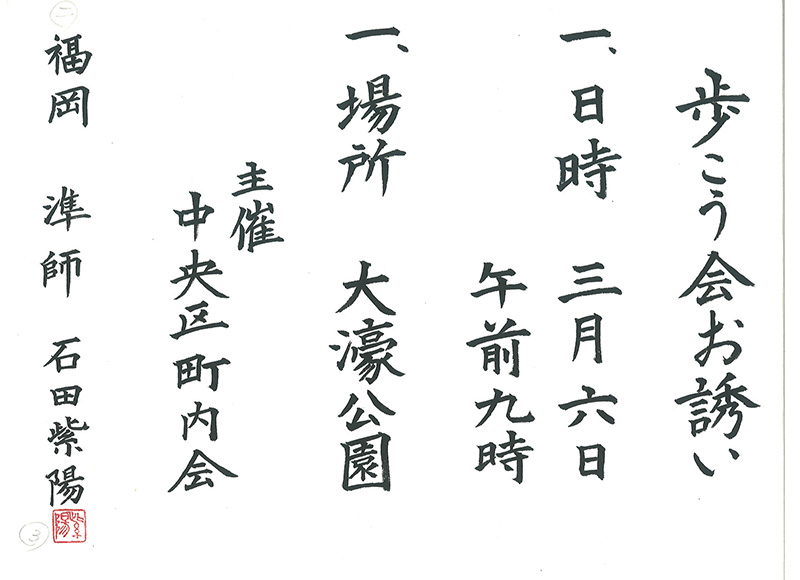 歩こう会お誘い
一、日時 三月六日
午前九時
一、場所 大濠公園
主催
中央区町内会
福岡 準師 石田紫陽
紫陽
二
3